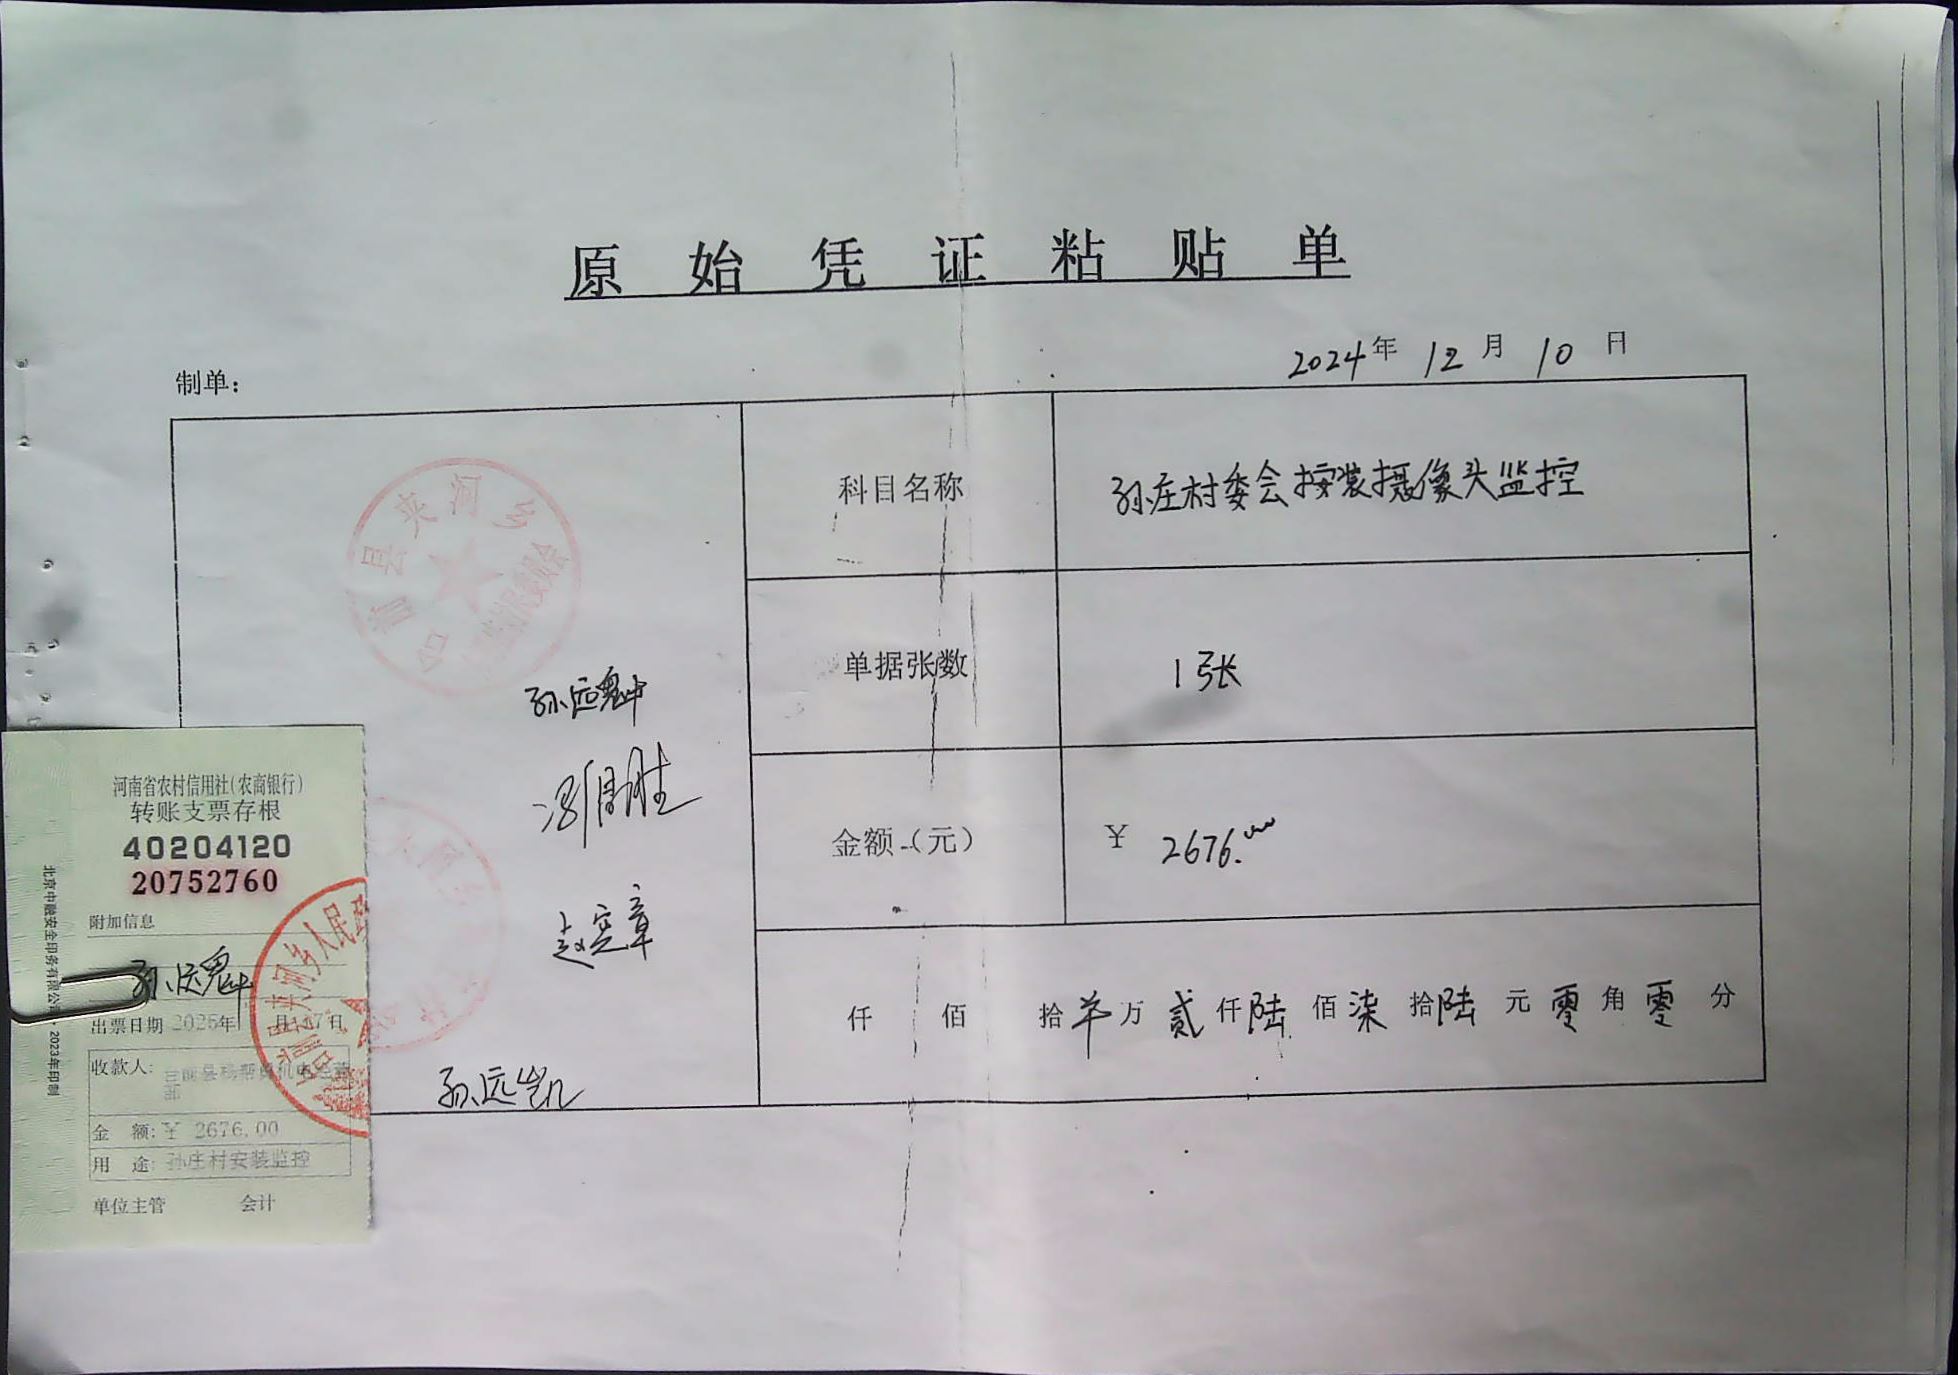 原始凭证粘贴单
2024年 12月 10日
制单：
科目名称
孙庄村委会按装摄像头监控
单据张数
1张
金额（元）
¥ 2676.00
仟 佰 拾 万 贰仟陆佰柒拾陆元零角零分
台前县夹河乡
村民委员会
孙远魁
赵宪章
孙远凯
河南省农村信用社(农商银行)
转账支票存根
40204120
20752760
附加信息
孙远魁
出票日期 2025年 月 7日
收款人: 台前县
金 额: ¥ 2676.00
用 途: 孙庄村安装监控
单位主管 会计
北京中融安全印务有限公司·2023年印制
夹河乡人民政